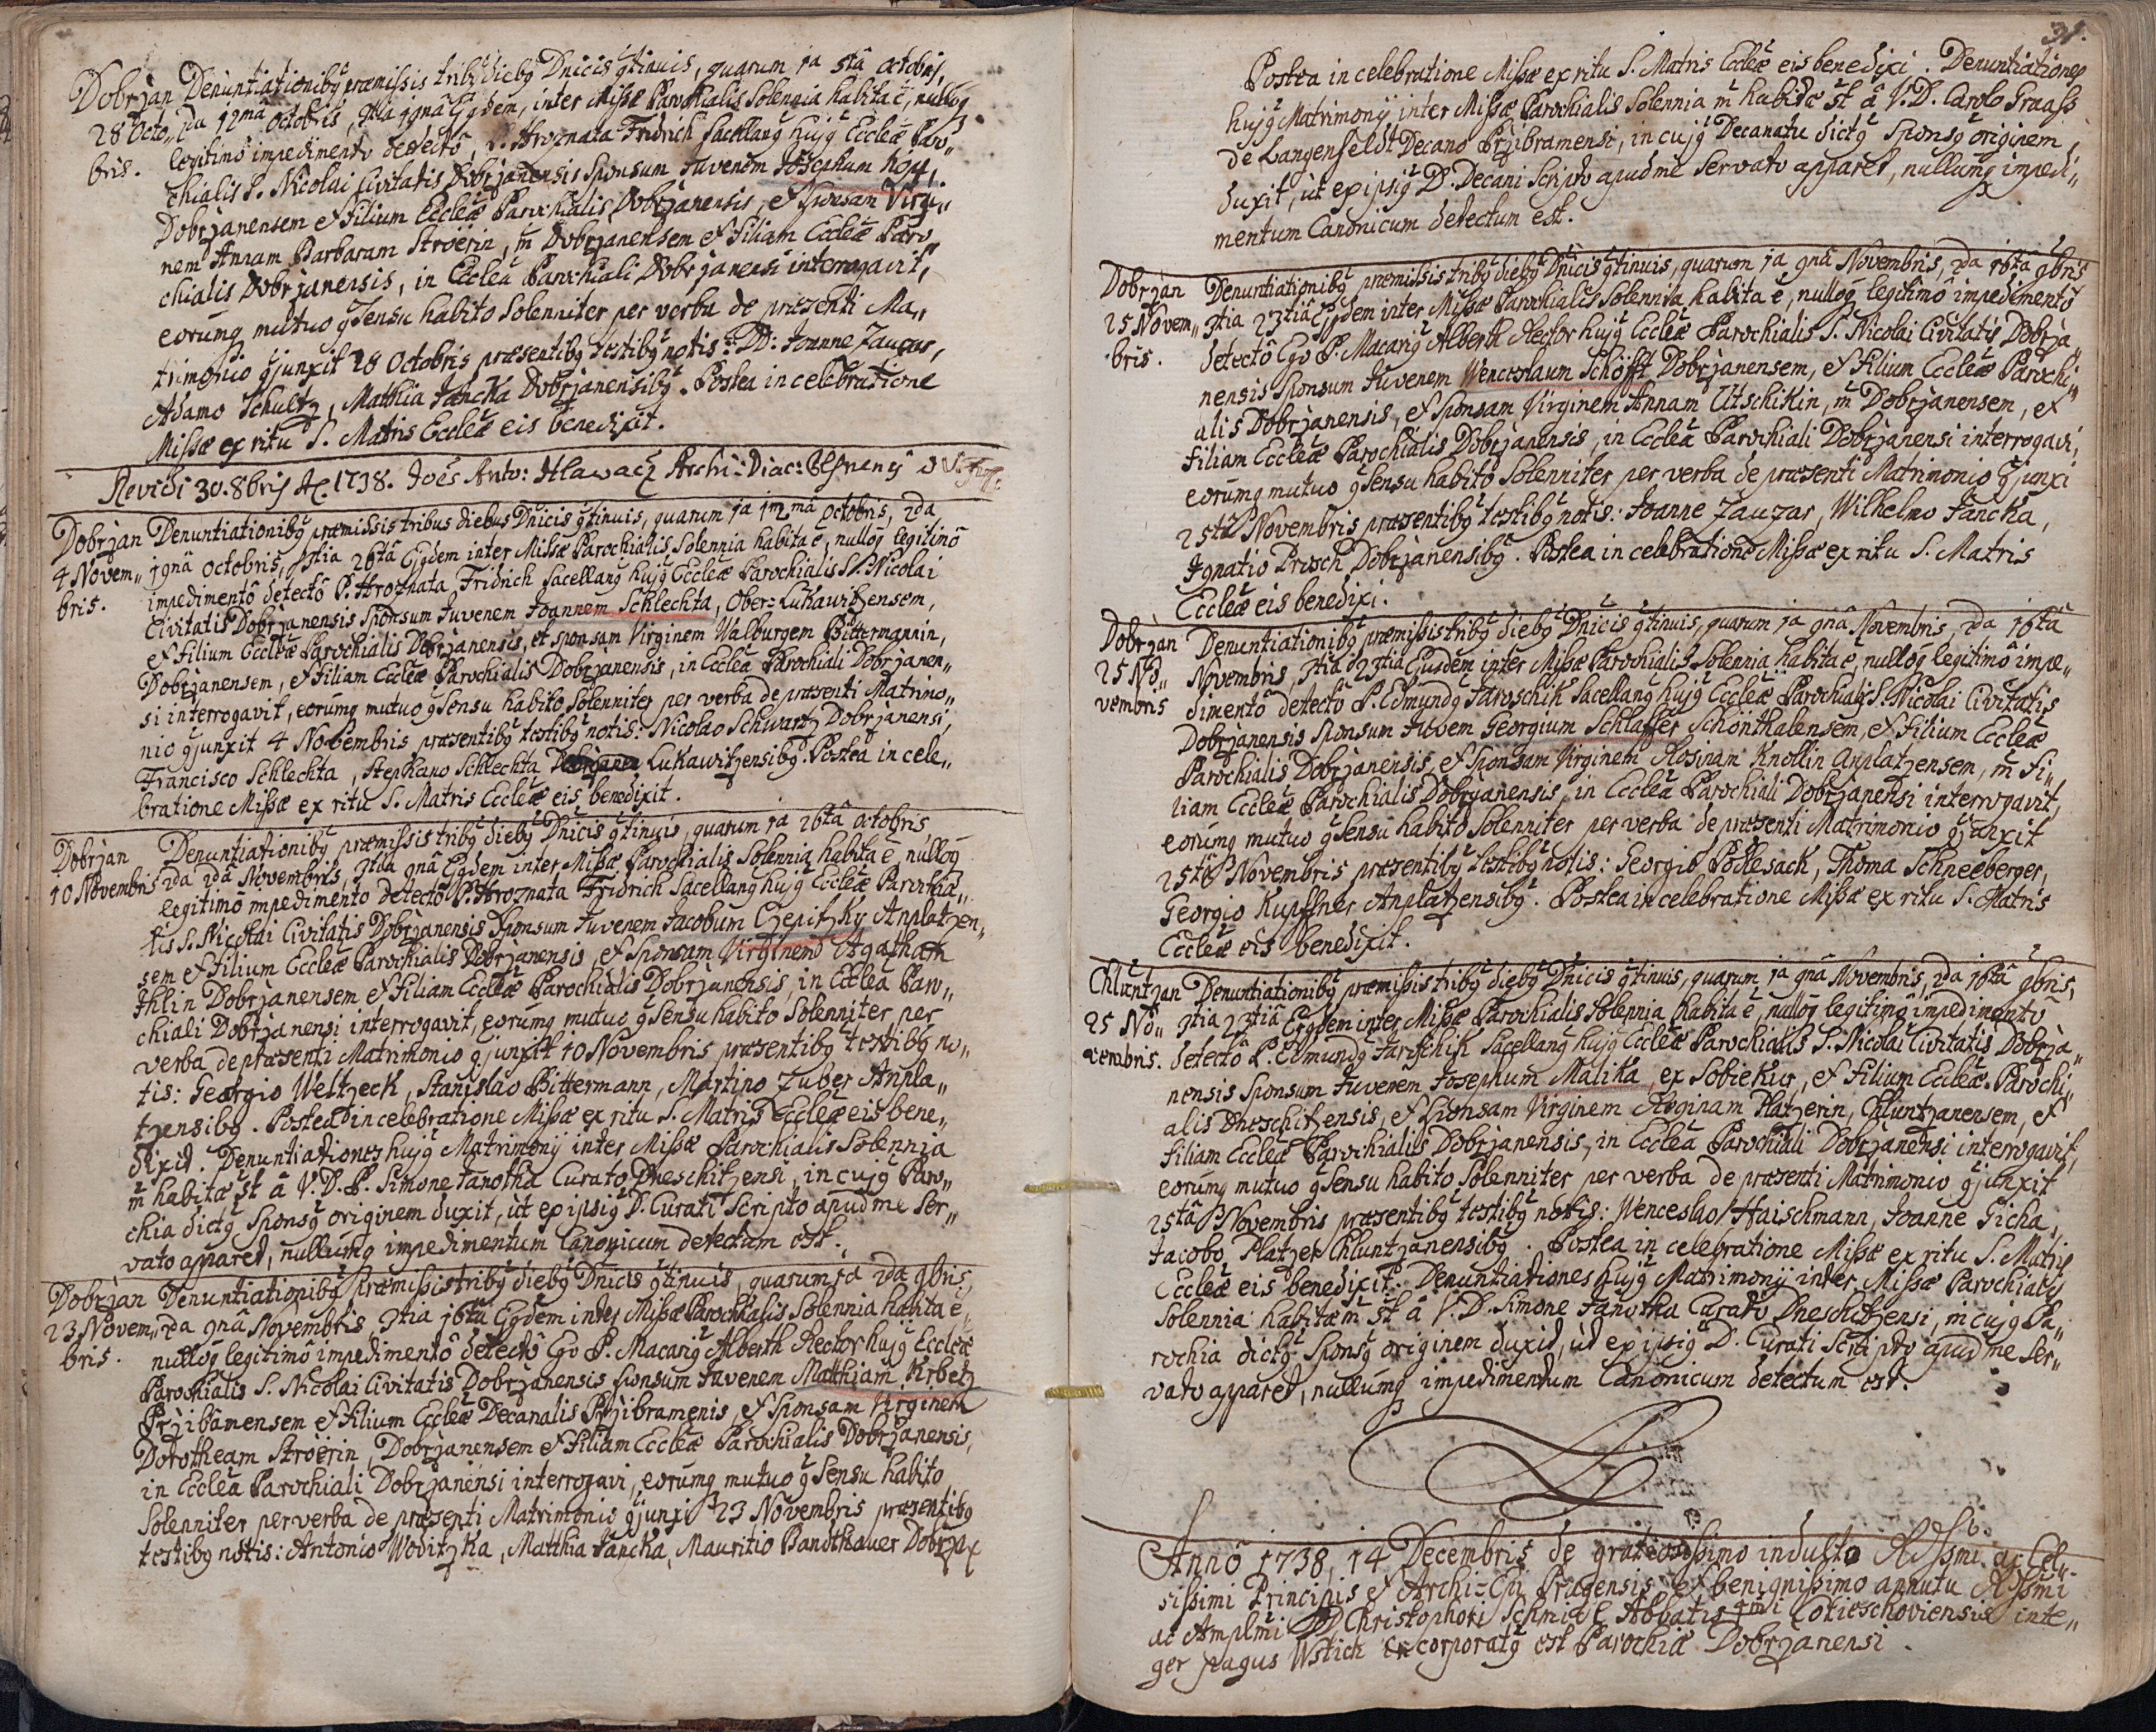 Dobrzan Denuntiationibg præmissis tribg diebg Dnicis gtinuis, quarum 1a 5ta octobris,
28 Octo„ 2da 12mâ octobris, 3tia 19nâ Ejgdem, inter Missæ Parochialis Solennia habita ē, nullog
bris. legitimô impedimentô detectô, P. Hroznata Fridrich Sacellang hujg Eccleæ Paro„
chialis S. Nicolai Civitatis Dobrzanensis Sponsum Juvenem Josephum
Dobrzanensem et Filium Eccleæ Parochialis Dobrzanensis, et Sponsam Virgi„
nem Annam Barbaram Ströerin, m̄ Dobrzanensem et Filiam Eccleæ Paro„
chialis Dobrzanensis, in Ecclea Parochiali Dobrzanensi interrogavit,
eorumq mutuo gsensu habito Solenniter per verba de præsenti Ma„
trimonio gjunxit 28 Octobris præsentibg testibg notis: DD: Joanne Zauzar,
Adamo Schultz, Matthia Jancka Dobrzanensibg. Postea in celebratione
Missæ ex ritu S. Matris Eccleæ eis benedixit.
Revidi 30. 8bris Ao. 1738. Joês Anto: Hlawacz Archi: Diac:
Dobrzan Denuntiationibg præmissis tribus diebus Dnicis gtinuis, quarum 1a 12mâ octobris, 2da
4 Novem„ 19nâ octobris, 3tia 26tâ Ejgdem inter Missæ Parochialis Solennia habita ē, nullog legitimô
bris. impedimentô detectô P. Hroznata Fridrich Sacellang hujg Eccleæ Parochialis S. Nicolai
Civitatis Dobrzanensis Sponsum Juvenem Joannem Schlechta, Ober=Lukawitzensem,
et Filium Eccleæ Parochialis Dobrzanensis, et sponsam Virginem Walburgem Bittermannin,
Dobrzanensem, et Filiam Eccleæ Parochialis Dobrzanensis, in Ecclea Parochiali Dobrzanen„
si interrogavit, eorumq mutuo gsensu habito Solenniter per verba de præsenti Matrimo„
nio gjunxit 4 Novembris præsentibg testibg notis: Nicolao Schwartz Dobrzanensi,
Francisco Schlechta, Stephano Schlechta Lukawitzensibg. Postea in cele„
bratione Missæ ex ritu S. Matris Eccleæ eis benedixit.
Dobrzan Denuntiationibg præmissis tribg diebg Dnicis gtinuis, quarum 1a 26tâ octobris,
10 Novembris 2da 2dâ Novembris, 3tia 9nâ Ejgdem inter Missæ Parochialis Solennia habita ē, nullog
legitimô impedimento detectô P. Hroznata Fridrich Sacellang hujg Eccleæ Parochia„
lis S. Nicolai Civitatis Dobrzanensis Sponsum Juvenem Jacobum Czepitzky Anplatzen„
sem et Filium Eccleæ Parochialis Dobrzanensis, et Sponsam Virginem Agatham
Ihlin Dobrzanensem et Filiam Eccleæ Parochialis Dobrzanensis, in Ecclea Paro„
chiali Dobrzanensi interrogavit, eorumq mutuo gsensu habito Solenniter per
verba de præsenti Matrimonio gjunxit 10 Novembris præsentibg testibg no„
tis: Georgio Weltzeck, Stanislao Bittermann, Martino Zuber Anpla„
tzensibg. Postea in celebratione Missæ ex ritu S. Matris Eccleæ eis bene„
dixit. Denuntiationes hujg Matrimonij inter Missæ Parochialis Solennia
m̄ habitæ st â V. D. P. Simone Janotka Curato Dneschitzensi, in cujg Paro„
chia dictg Sponsg originem duxit, ut ex ipsig D. Curati Scripto apud me ser„
vato apparet, nullumq impedimentum Canonicum detectum est.
Dobrzan Denuntiationibg præmissis tribg diebg Dnicis gtinuis, quarum 1a 2da 9bris,
23 Novem„ 2da 9nâ Novembris 3tia 16tâ Ejgdem inter Missæ Parochialis Solennia habita ē,
bris. nullog legitimô impedimentô detectô Ego P. Macarig Alberth Rector hujg Eccleæ
Parochialis S. Nicolai Civitatis Dobrzanensis sponsum Juvenem Matthiam Krbetz
Przibamensem et Filium Eccleæ Decanalis Przibramenis, et Sponsam Virginem
Dorotheam Ströerin, Dobrzanensem et Filiam Eccleæ Parochialis Dobrzanensis,
in Ecclea Parochiali Dobrzanensi interrogavi, eorumq mutuo gsensu habito
Solenniter per verba de præsenti Matrimonio gjunxi 23 Novembris præsentibg
testibg notis: Antonio Woditzka, Matthia Jancka, Mauritio Bandthauer Dobrza
31.
Postea in celebratione Missæ ex ritu S. Matris Eccleæ eis benedixi. Denuntiationes
hujg Matrimonij inter Missæ Parochialis Solennia m̄ habitæ st â V. D. Carolo Graass
de Langenfeldt Decano Przibramensi, in cujg Decanatu dictg Sponsg originem
duxit, ut ex ipsig D. Decani Scripto apud me Servato apparet, nullumq impedi„
mentum Canonicum detectum est.
Dobrzan Denuntiationibg præmissis tribg diebg Dnicis gtinuis, quarum 1a 9nâ Novembris, 2da 16ta 9bris
25 Novem„ 3tia 23tiâ Ejgdem inter Missæ Parochialis Solennia habita ē, nullog legitimô impedimentô
bris. detectô Ego P. Macarig Alberth Rector hujg Eccleæ Parochialis S. Nicolai Civitatis Dobrza„
nensis Sponsum Juvenem Wenceslaum Schöfft Dobrzanensem, et Filium Eccleæ Parochi„
alis Dobrzanensis, et Sponsam Virginem Annam Utschikin, m̄ Dobrzanensem, et
Filiam Eccleæ Parochialis Dobrzanensis, in Ecclea Parochiali Dobrzanensi interrogavi,
eorumq mutuo gsensu habito Solenniter per verba de præsenti Matrimonio gjunxi
25ta Novembris præsentibg testibg notis: Joanne Zauzar, Wilhelmo Jancka,
Ignatio Prosch Dobrzanensibg. Postea in celebratione Missæ ex ritu S. Matris
Eccleæ eis benedixi.
Dobrzan Denuntiationibg præmissis tribg diebg Dnicis gtinuis, quarum 1a 9nâ Novembris, 2da 16tâ
25 No„ Novembris, 3tia 23tiâ Ejusdem inter Missæ Parochialis Solennia habita ē, nullog legitimô impe„
vembris dimentô detectô P. Edmundg Jaroschik Sacellang hujg Eccleæ Parochialis S. Nicolai Civitatis
Dobrzanensis Sponsum Juvem Georgium Schlaffer Schönthalensem, et Filium Eccleæ
Parochialis Dobrzanensis, et Sponsam Virginem Rosinam Knollin Anplatzensem, m̄ Fi„
liam Eccleæ Parochialis Dobrzanensis, in Ecclea Parochiali Dobrzanensi interrogavit,
eorumq mutuo gsensu habito Solenniter per verba de præsenti Matrimonio gjunxit
25ta Novembris præsentibg testibg notis: Georgio Podlesack, Thoma Schneeberger,
Georgio Kupffner Anplatzensibg. Postea in celebratione Missæ ex ritu S. Matris
Eccleæ eis benedixit.
Chluntzan Denuntiationibg præmissis tribg diebg Dnicis gtinuis, quarum 1a 9nâ Novembris, 2da 16tâ 9bris,
25 No„ 3tia 23tiâ Ejgdem inter Missæ Parochialis Solennia habita ē, nullog legitimô impedimentô
vembris. detectô P. Edmundg Jaroschik Sacellang hujg Eccleæ Parochialis S. Nicolai Civitatis Dobrza„
nensis Sponsum Juvenem Josephum Malika, ex Sobiekur, et Filium Eccleæ Parochi„
alis Dneschitzensis, et Sponsam Virginem Reginam Platzerin, Chluntzanensem, et
Filiam Eccleæ Parochialis Dobrzanensis, in Ecclea Parochiali Dobrzanensi interrogavit,
eorumq mutuo gsensu habito Solenniter per verba de præsenti Matrimonio gjunxit
25ta Novembris præsentibg testibg notis: Wenceslao Haischmann, Joanne Ticha,
Jacobo Platzer Chluntzanensibg. Postea in celebratione Missæ ex ritu S. Matris
Eccleæ eis benedixit. Denuntiationes hujg Matrimonij inter Missæ Parochialis
Solennia habitæ m̄ st â V. D. Simone Janotka Curato Dneschitzensi, in cujg Pa„
rochia dictg Sponsg originem duxit, ut ex ipsig D. Curati Scripto apud me Ser„
vato apparet, nullumq impedimentum Canonicum detectum est.
Annô 1738 14 Decembris de gratiosissimo indulto Rdssmi ac Cel„
sissimi Principis et Archi-Epi Pragensis et benignissimo annutu Rssmi
ac Amplmi DD Christophori Schmidl Abbatis Cotieschoviensis inte„
ger pagus Wstich incorporatg est Parochiæ Dobrzanensi.